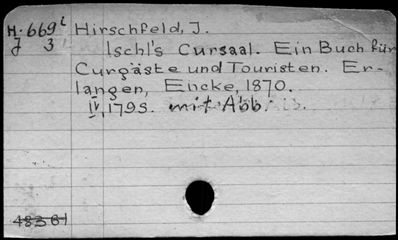 H. 669² Hirschfeld, J.
J 3 Ischl's Cursaal. Ein Buch für
Curgäste und Touristen. Er-
langen, Encke, 1870.
IV, 179S. mit Abb.
48361